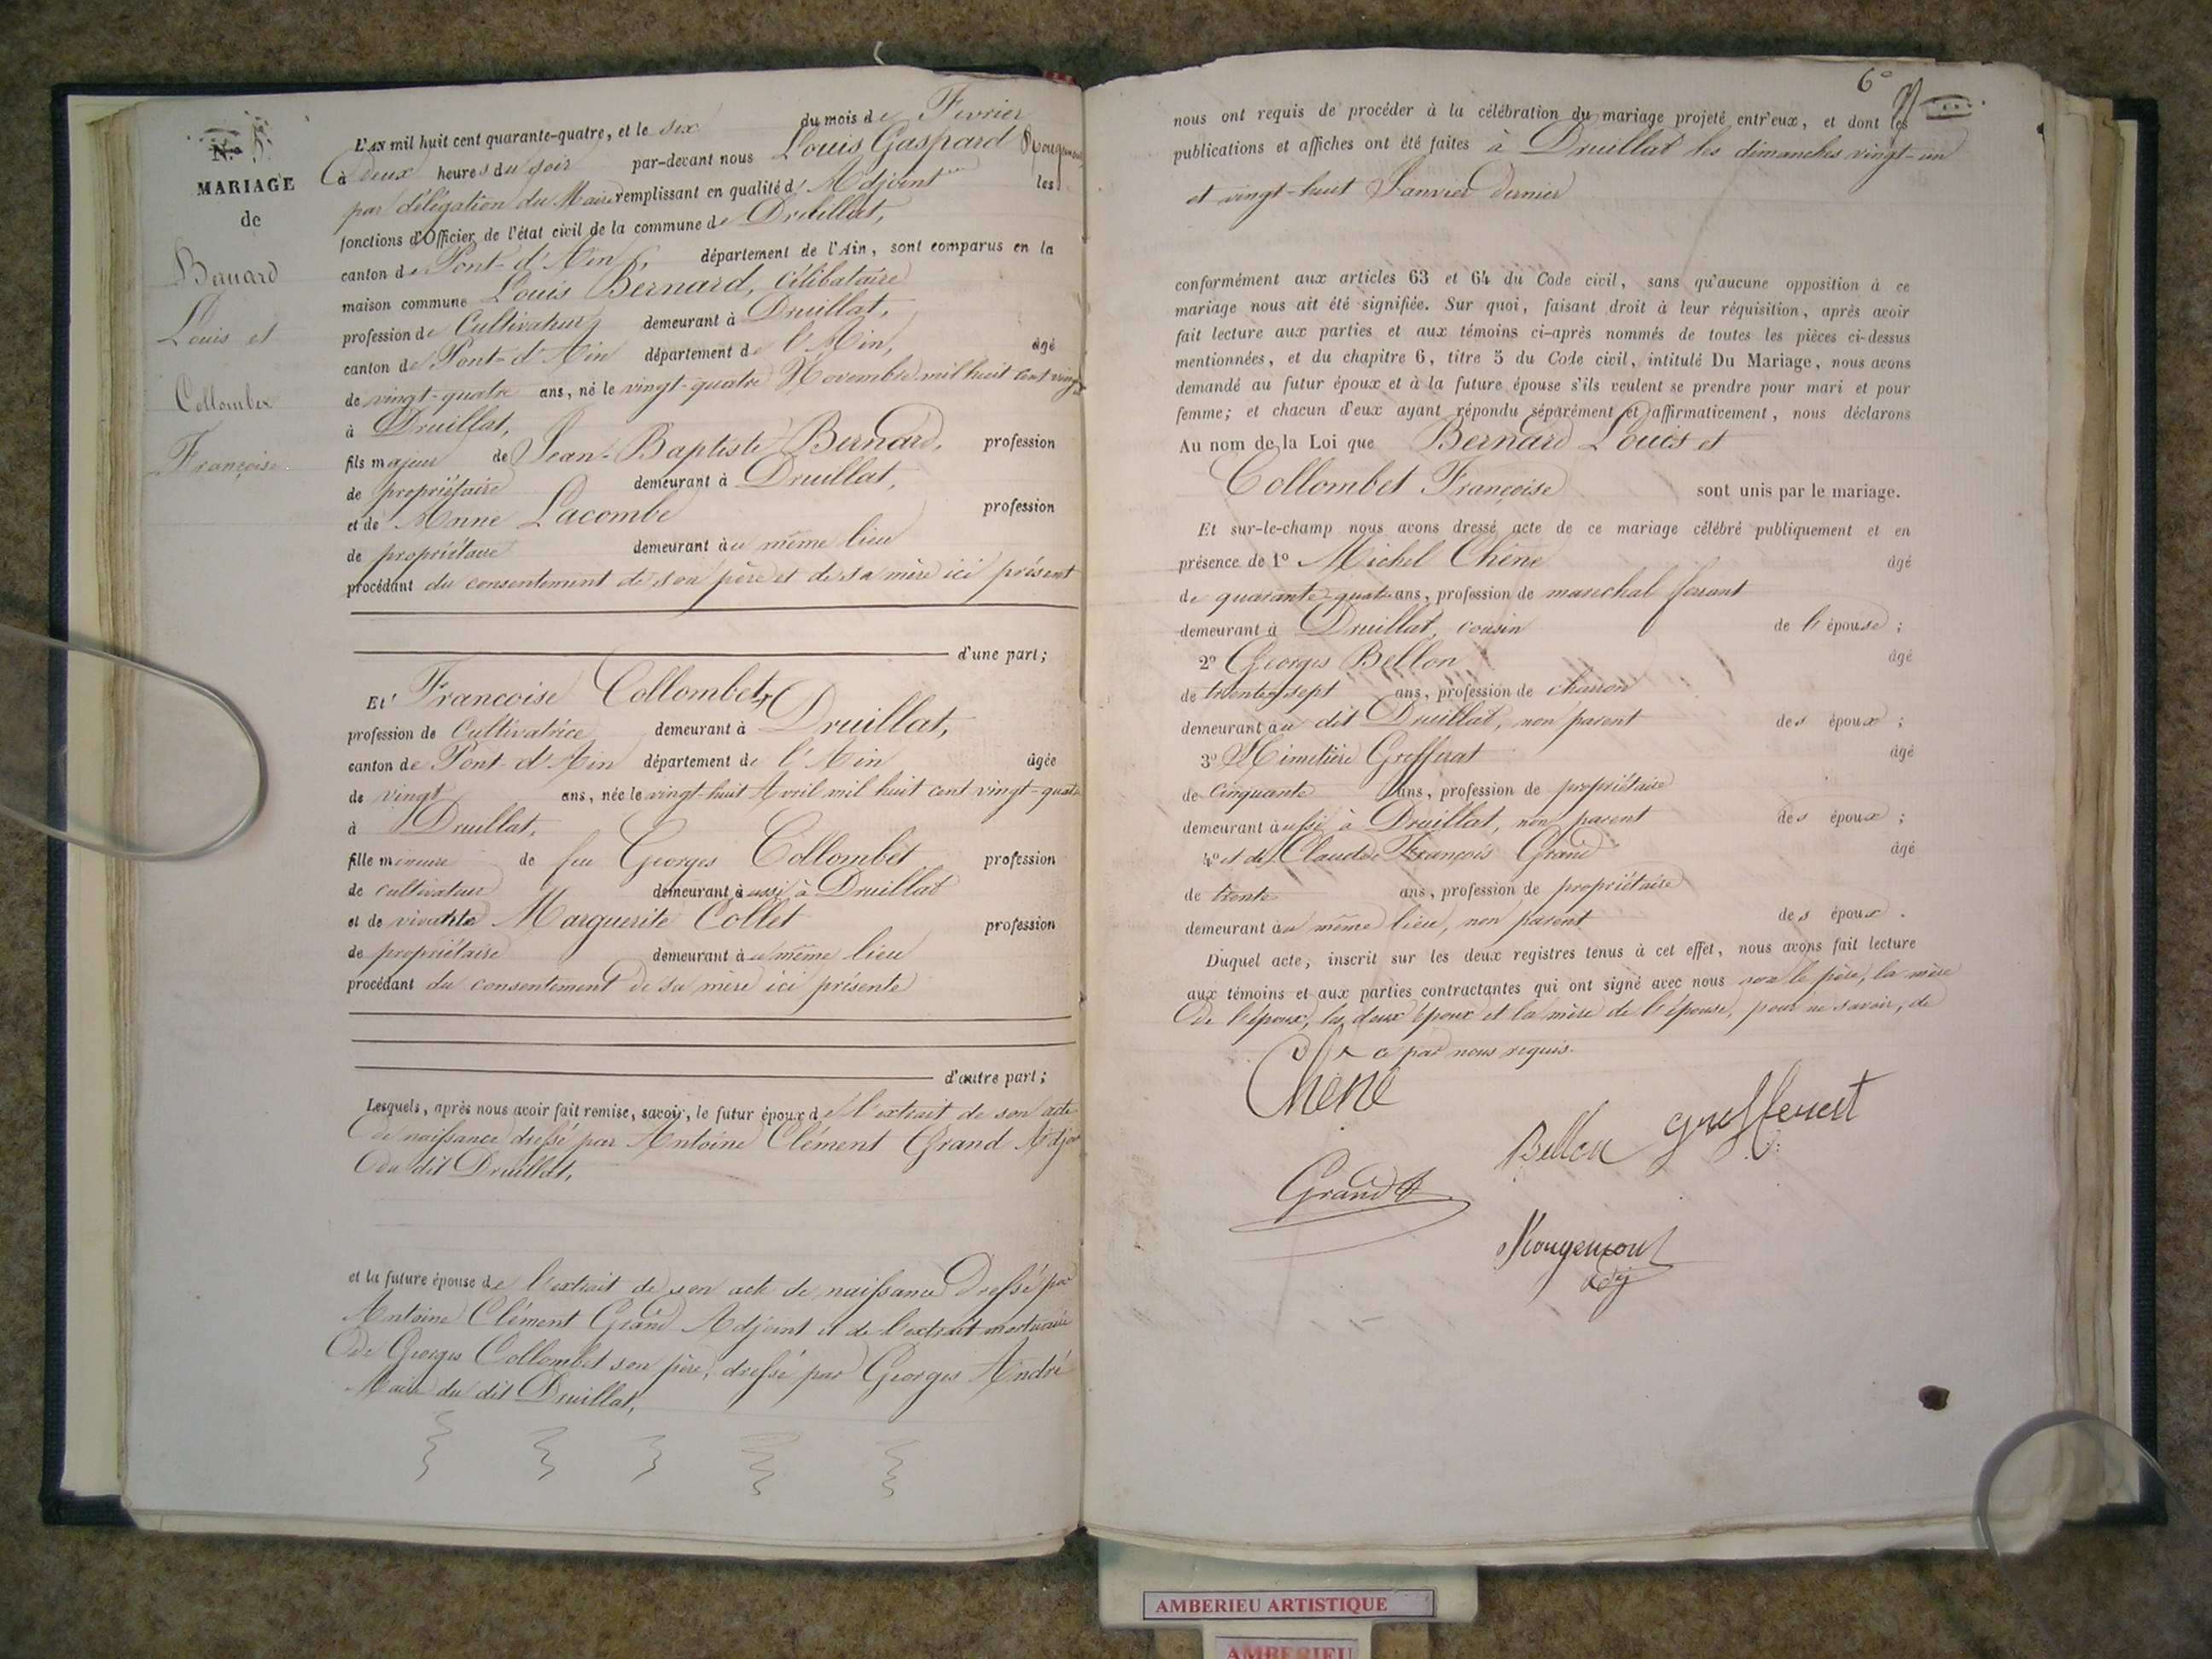 N.o 5.
MARIAGE
de
Bernard
Louis et
Collombet
Françoise
L'AN mil huit cent quarante-quatre, et le six du mois de Fevrier
à deux heures du soir par-devant nous Louis Gaspard Rougemont
par délégation du Maire remplissant en qualité d'Adjoint les
fonctions d'Officier de l'état civil de la commune de Druillat,
canton de Pont-d'Ain, département de l'Ain, sont comparus en la
maison commune Louis Bernard, célibataire
profession de Cultivateur demeurant à Druillat,
canton de Pont-d'Ain département de l'Ain, âgé
de vingt-quatre ans, né le vingt-quatre Novembre mil huit cent vingt
à Druillat,
fils majeur de Jean-Baptiste Bernard, profession
de propriétaire demeurant à Druillat,
et de Anne Lacombe profession
de propriétaire demeurant au même lieu
procédant du consentement de son père et de sa mère ici présent
d'une part;
ET Francoise Collombet,
profession de Cultivatrice demeurant à Druillat,
canton de Pont-d'Ain département de l'Ain âgée
de vingt ans, née le vingt-huit Avril mil huit cent vingt-quatre
à Druillat,
fille mineure de feu Georges Collombet profession
de cultivateur demeurant à aussi à Druillat
et de vivante Marguerite Collet profession
de propriétaire demeurant au même lieu
procédant du consentement de sa mère ici présente
d'autre part;
Lesquels, après nous avoir fait remise, savoir, le futur époux de l'extrait de son acte
de naissance dressé par Antoine Clément Grand Adjoint
du dit Druillat,
et la future épouse de l'extrait de son acte de naissance dressé par
Antoine Clément Grand Adjoint et de l'extrait mortuaire
de Georges Collombet son père, dressé par Georges André
Maire du dit Druillat,
6e
nous ont requis de procéder à la célébration du mariage projeté entr'eux, et dont les
publications et affiches ont été faites à Druillat les dimanches vingt-un
et vingt-huit Janvier dernier
conformément aux articles 63 et 64 du Code civil, sans qu'aucune opposition à ce
mariage nous ait été signifiée. Sur quoi, faisant droit à leur réquisition, après avoir
fait lecture aux parties et aux témoins ci-après nommés de toutes les pièces ci-dessus
mentionnées, et du chapitre 6, titre 5 du Code civil, intitulé Du Mariage, nous avons
demandé au futur époux et à la future épouse s'ils veulent se prendre pour mari et pour
femme; et chacun d'eux ayant répondu séparément et affirmativement, nous déclarons
Au nom de la Loi que Bernard Louis et
Collombet Françoise sont unis par le mariage.
Et sur-le-champ nous avons dressé acte de ce mariage célébré publiquement et en
présence de 1o Michel Chêne âgé
de quarante-quatre ans, profession de marechal ferrant
demeurant à Druillat, cousin de l'épouse;
2o Georges Bellon âgé
de trente sept ans, profession de charron
demeurant au dit Druillat, non parent des époux;
3o Grefferat âgé
de Cinquante ans, profession de propriétaire
demeurant aussi à Druillat, non parent des époux;
4o et de Claude François Grand âgé
de trente ans, profession de propriétaire
demeurant au même lieu, non parent des époux.
Duquel acte, inscrit sur les deux registres tenus à cet effet, nous avons fait lecture
aux témoins et aux parties contractantes qui ont signé avec nous non le père, la mère
de l'époux, les deux époux et la mère de l'épouse, pour ne savoir, de
ce par nous requis.
Chêne
Bellon Grefferat
Grand
Rougemont
adj
AMBERIEU ARTISTIQUE
AMBERIEU